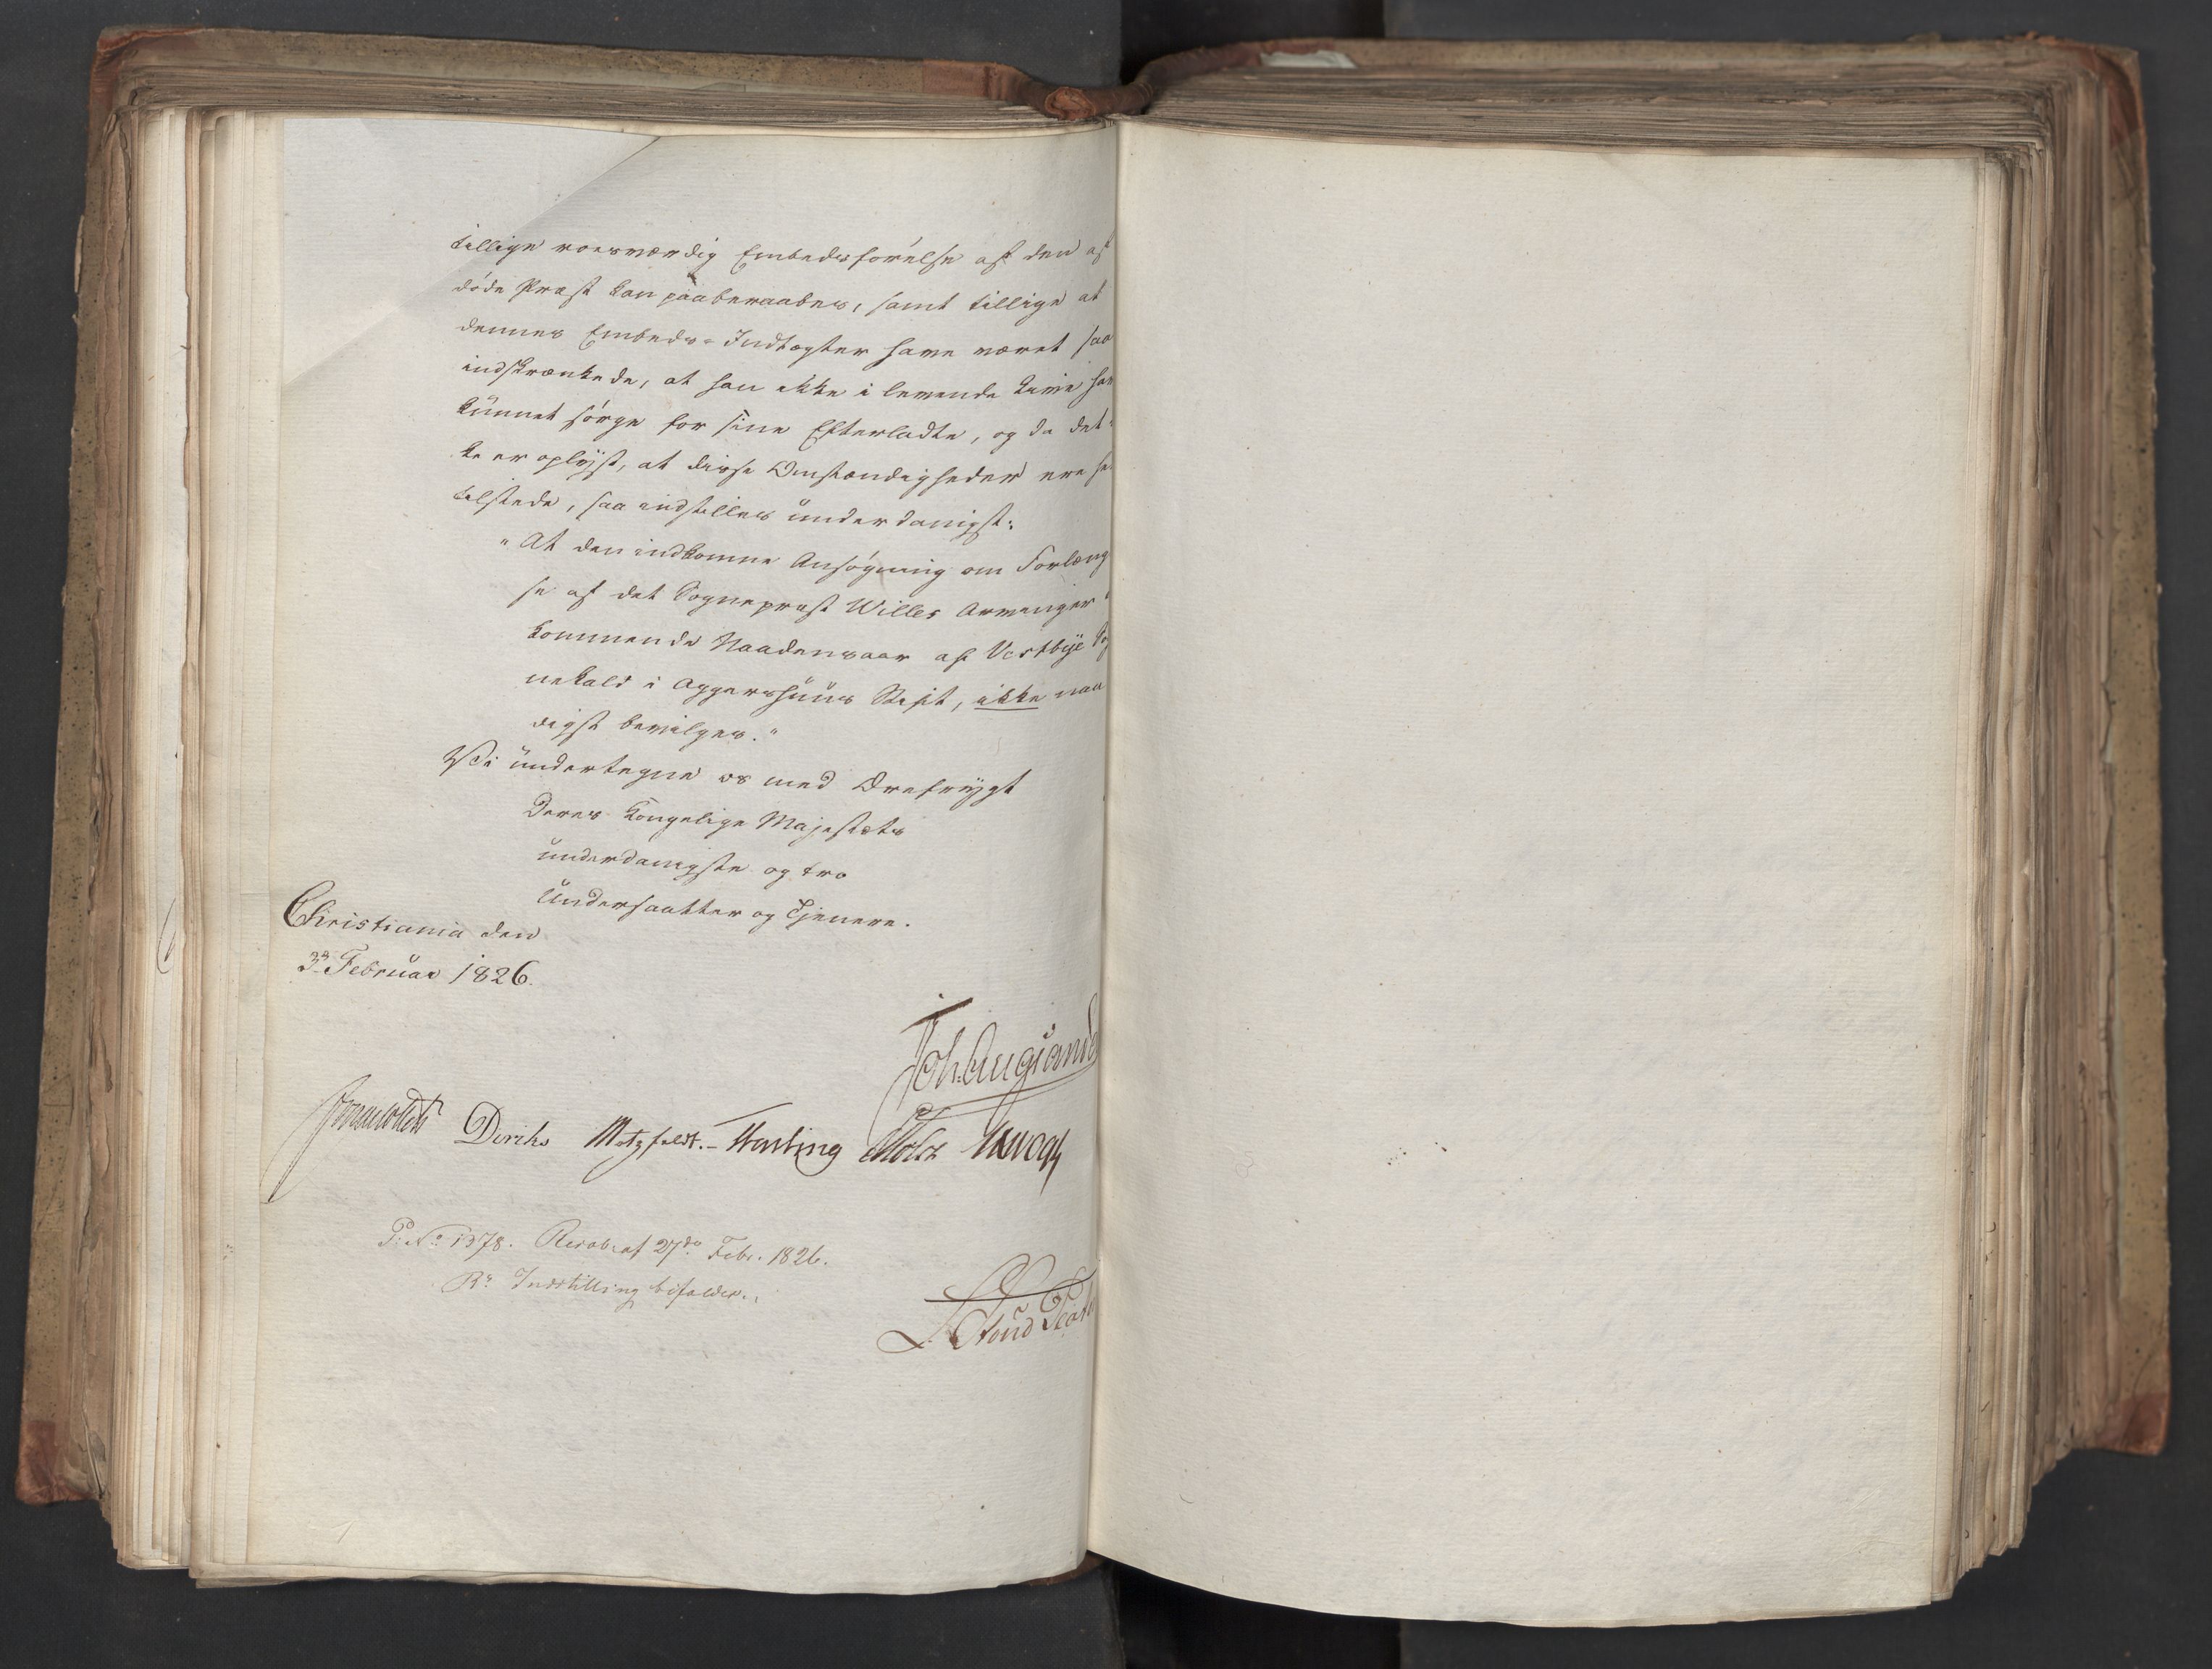 tillige roesværdig Embedsførelse af den af
døde Præst kan paaberaabes, samt tillige at
dennes Embeds-Indtægter have været saa
indskrænkede, at han ikke i levende Live har
kunnet sørge for sine Efterladte, og da det
ke er oplyst, at disse Omstændigheder ere he
tilstede, saa indstilles underdanigst:
"At den indkomne Ansøgning om Forlæng
se af det Sognepræst Willes Arvinger
kommende Naadensaar af Vestbye Sog
nekald i Aggershuus Stift, ikke naa
digst bevilges."
Vi undertegne os med Ærefrygt
Deres Kongelige Majestæts
underdanigste og tro
Undersaatter og Tjenere.
Christiania den
3die Februar 1826.
Joh. Aug. Sande
Diriks Motzfeldt. Fasting Holst
P: No 1378. Resol: af 27de Febr. 1826.
Rs Indstilling bifaldes.